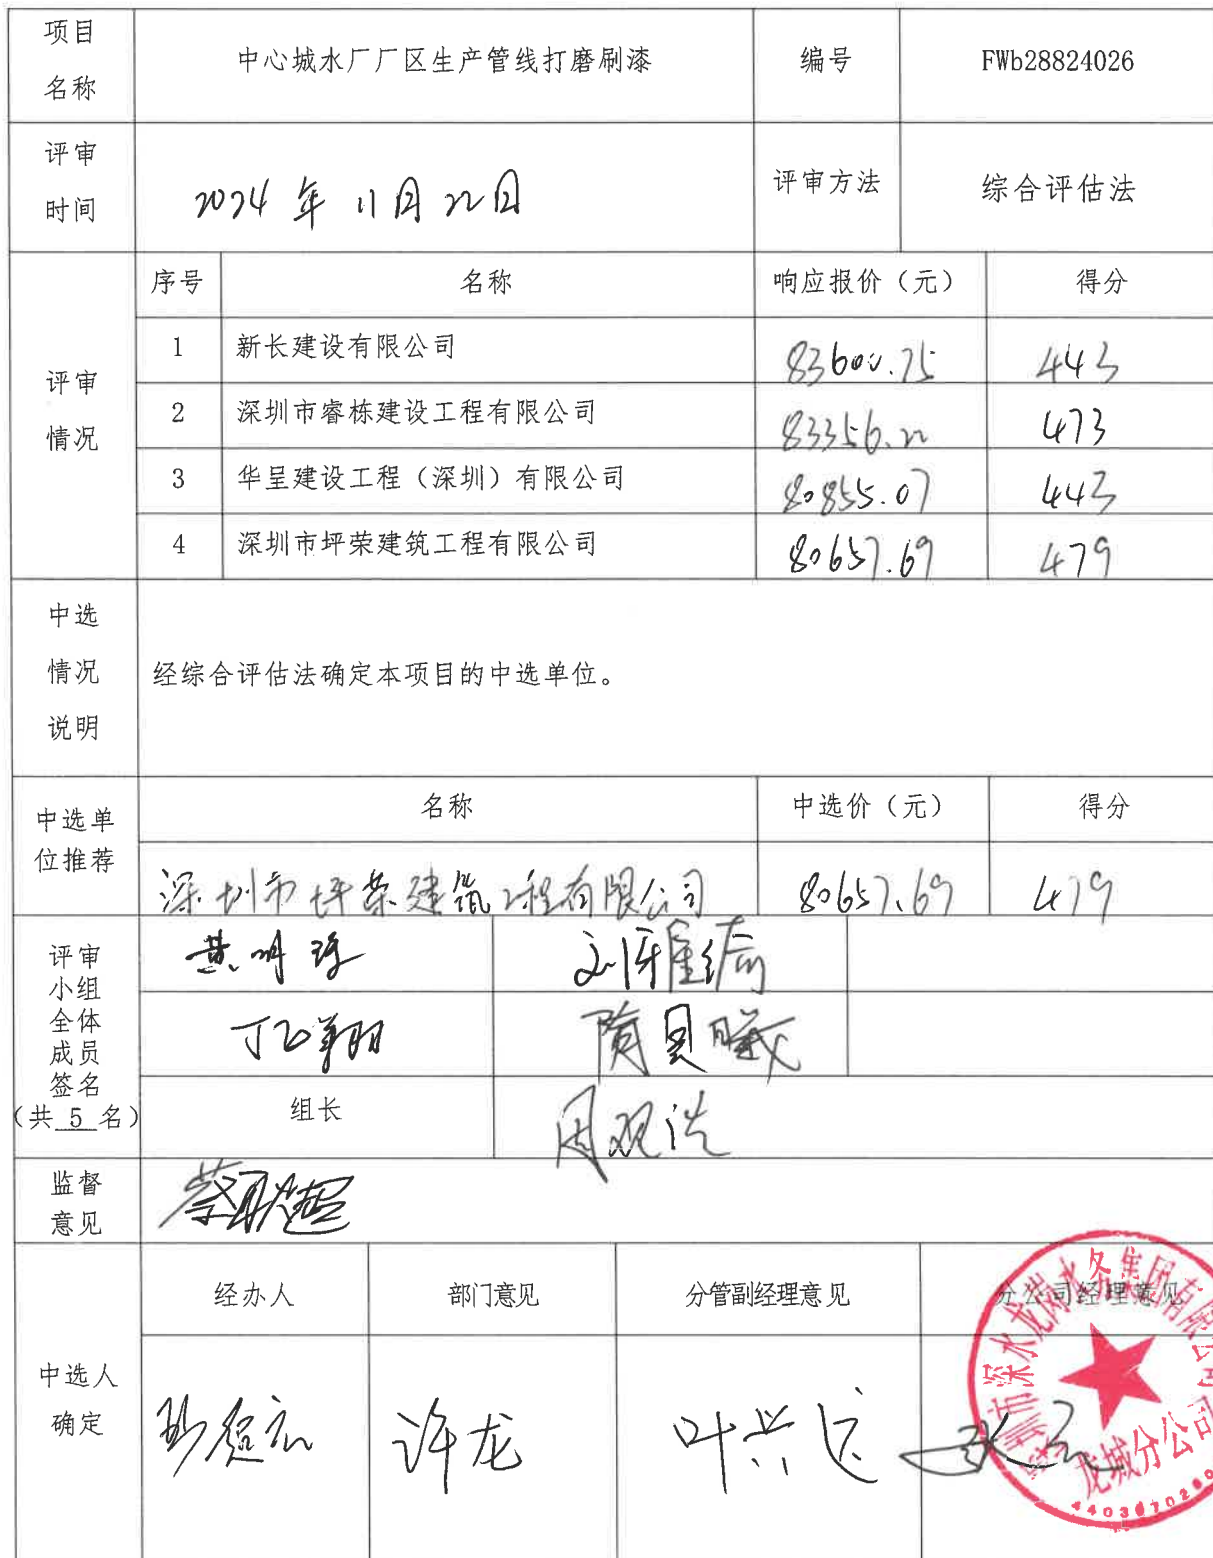 项目名称 中心城水厂厂区生产管线打磨刷漆 编号 FWb28824026
评审时间 2024年11月22日 评审方法 综合评估法
评审情况 序号 名称 响应报价（元） 得分
1 新长建设有限公司 83600.75 443
2 深圳市睿栋建设工程有限公司 83356.22 473
3 华呈建设工程（深圳）有限公司 80855.07 443
4 深圳市坪荣建筑工程有限公司 80657.69 479
中选情况说明 经综合评估法确定本项目的中选单位。
中选单位推荐 名称 中选价（元） 得分
深圳市坪荣建筑工程有限公司 80657.69 479
评审小组全体成员签名（共 5 名）
丁飞翔
组长
监督意见
中选人确定 经办人 部门意见 分管副经理意见 分公司经理意见
许龙
深圳市深水龙岗水务集团有限公司
龙城分公司